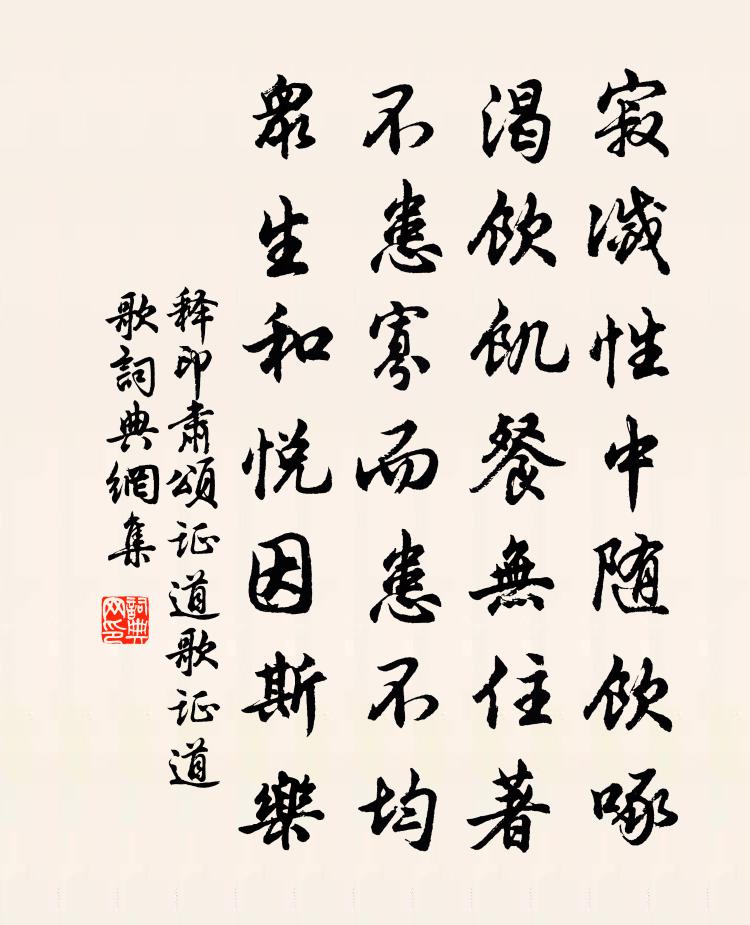 寂滅性中随飲啄
渴飲飢餐無住著
不患寡而患不均
眾生和悅因斯樂
释印肅頌证道歌证道
歌詞典網集
詞典网印